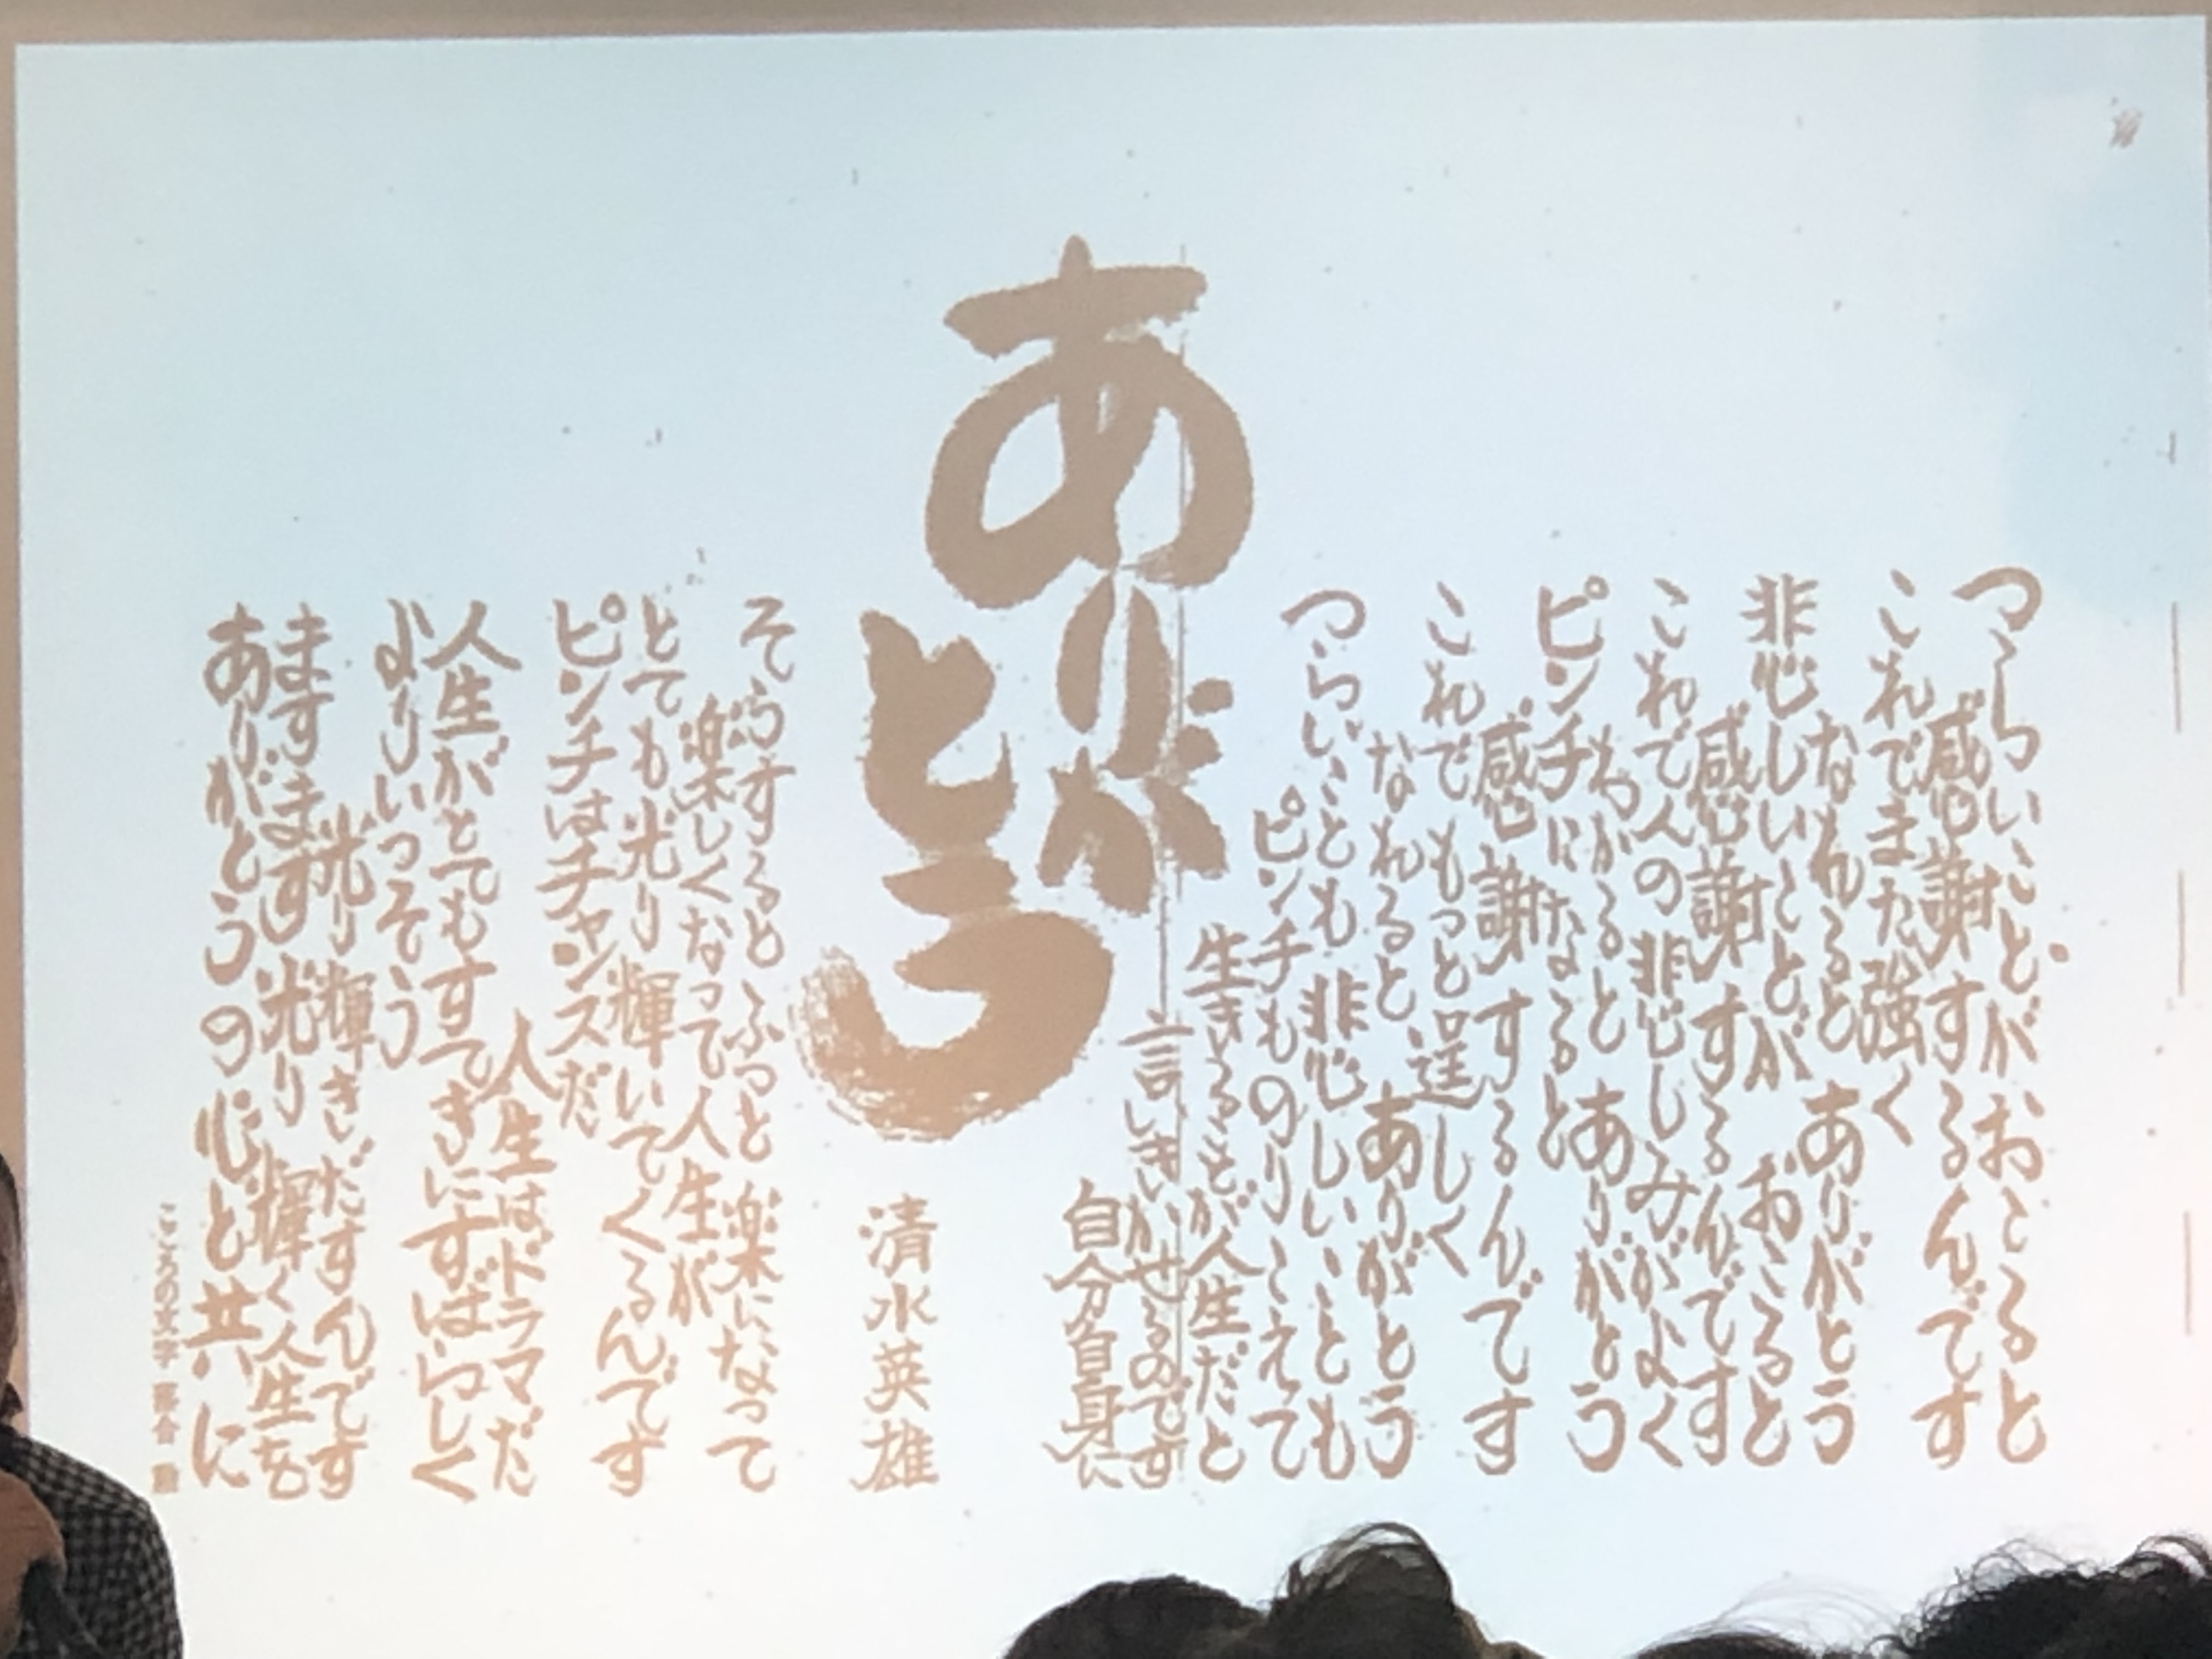 つらいことがおこると
感謝するんです
これでまた強く
なれると ありがとう
悲しいことが おこると
感謝するんです
これで人の悲しみがよく
わかると ありがとう
ピンチになると
感謝するんです
これで もっと逞しく
なれると ありがとう
つらいことも 悲しいことも
ピンチものりこえて
生きることが人生だと
言いきかせるのです
自分自身に
ありがとう
清水英雄
そうすると ふっと 楽になって
楽しくなって 人生が
とても光り輝いてくるんです
ピンチはチャンスだ
人生はドラマだ
人生がとてもすてきにすばらしく
よりいっそう
光り輝きだすんです
ますます光り輝く人生を
ありがとうの心と共に
こころの文字 落合 勲